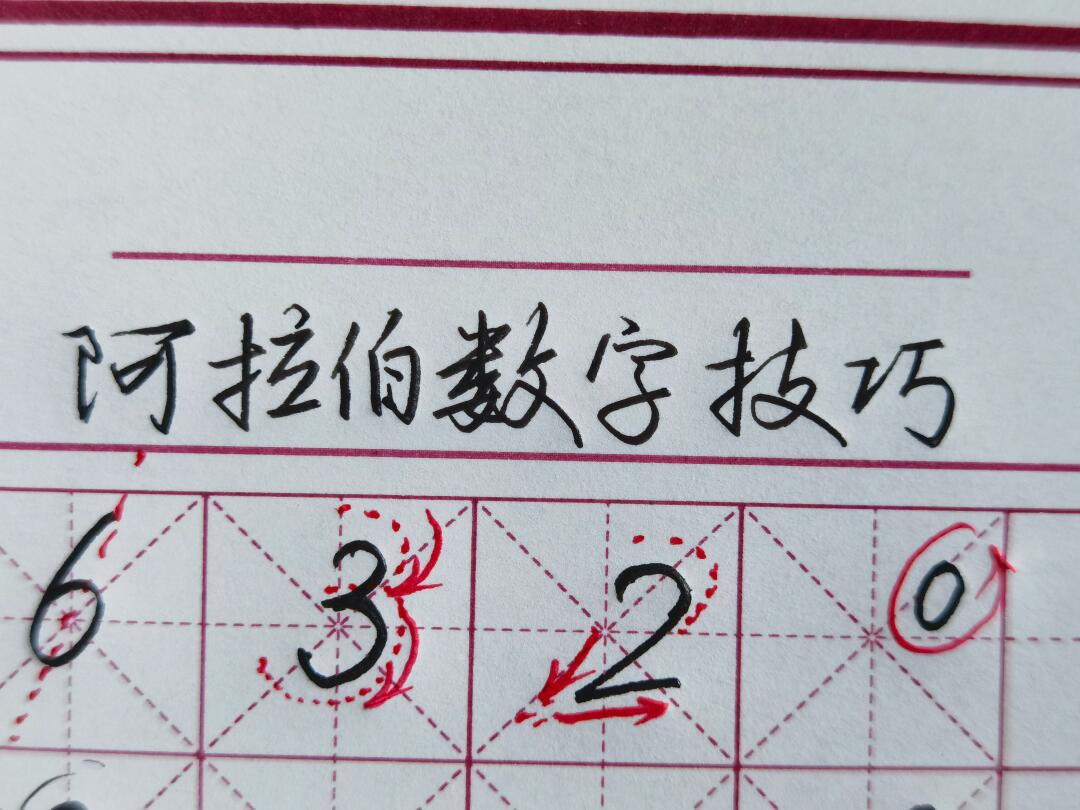 阿拉伯数字技巧
6 3 2 0